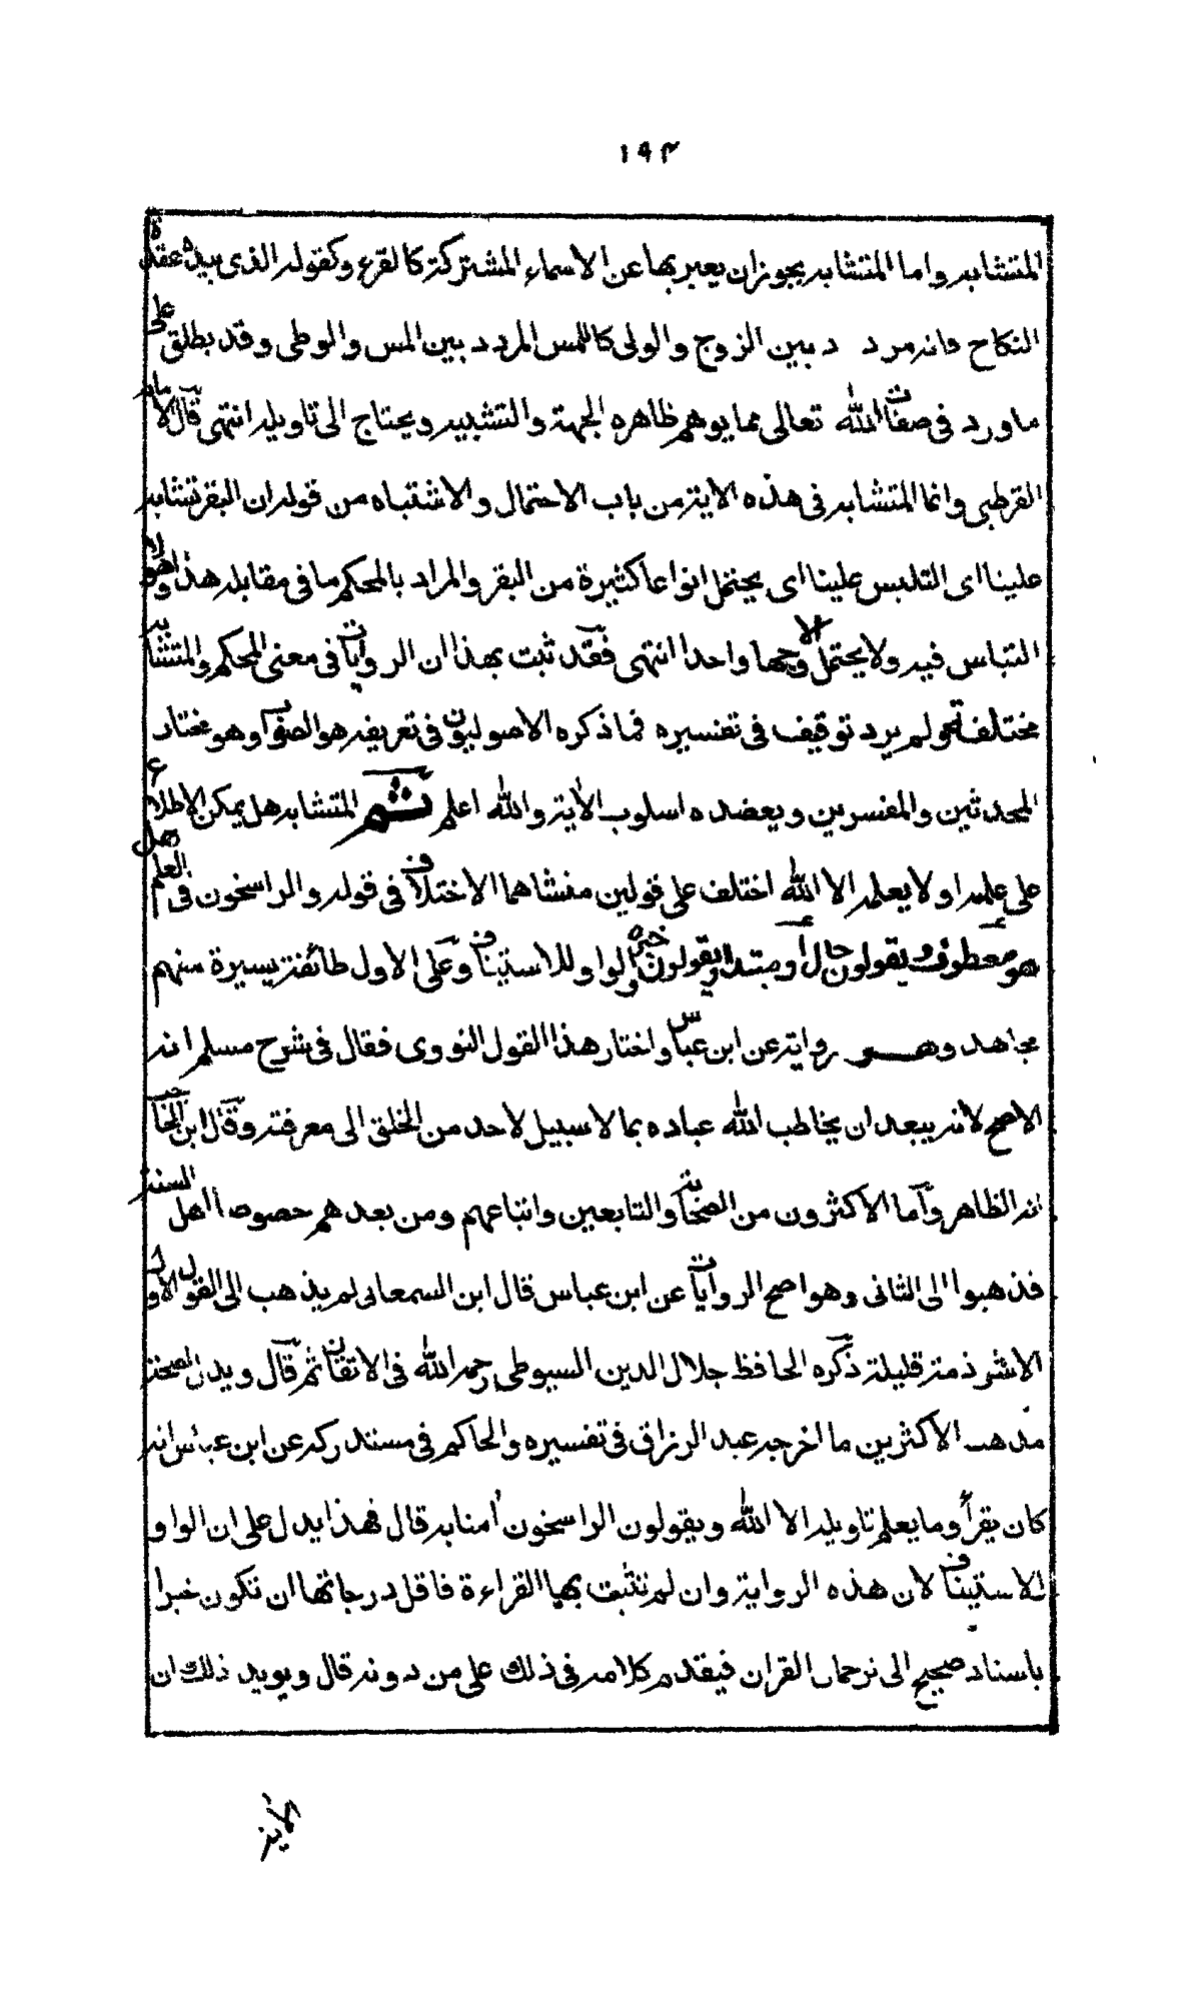 ١٩٣
المتشابه واما المتشابه يجوز ان يعبر بها عن الاسماء المشتركة كالقرء وكقوله الذى بيده عقدة
النكاح فانه مردد بين الزوج والولى كاللمس المردد بين المس والوطى وقد يطلق على
ما ورد فى صفات الله تعالى مما يوهم ظاهره الجهة والتشبيه ويحتاج الى تاويله انتهى قال الامام
القرطبى وانما المتشابه فى هذه الاية من باب الاحتمال والاشتباه من قوله ان البقر تشابه
علينا اى التلبس علينا اى يحتمل انواعا كثيرة من البقر والمراد بالمحكم ما فى مقابله هذا وهو لا
التباس فيه ولا يحتمل الا وجها واحدا انتهى فقد ثبت بهذا ان الروايات فى معنى المحكم والمتشابه
مختلفة ولم يرد توقيف فى تفسيره فما ذكره الاصوليون فى تعريفه هو الصواب وهو مختار
المحدثين والمفسرين ويعضده اسلوب الاية والله اعلم ثم المتشابه هل يمكن الاطلاع
على علمه او لا يعلمه الا الله اختلف على قولين منشاهما الاختلاف فى قوله والراسخون فى العلم هل
هو معطوف ويقولون حال او مبتدا ويقولون خبره والواو للاستيناف وعلى الاول طائفة يسيرة منهم
مجاهد وهو رواية عن ابن عباس واختار هذا القول النووى فقال فى شرح مسلم انه
الاصح لانه يبعد ان يخاطب الله عباده بما لا سبيل لاحد من الخلق الى معرفته وقال ابن الحاجب
انه الظاهر واما الاكثرون من الصحابة والتابعين واتباعهم ومن بعدهم خصوصا اهل السنة
فذهبوا الى الثانى وهو اصح الروايات عن ابن عباس قال ابن السمعانى لم يذهب الى القول الاول
الا شرذمة قليلة ذكره الحافظ جلال الدين السيوطى رحمه الله فى الاتقان ثم قال ويدل لصحة
مذهب الاكثرين ما اخرجه عبد الرزاق فى تفسيره والحاكم فى مستدركه عن ابن عباس انه
كان يقرأ وما يعلم تاويله الا الله ويقولون الراسخون أمنا به قال فهذا يدل على ان الواو
للاستيناف لان هذه الرواية وان لم تثبت بها القراءة فاقل درجاتها ان تكون خبرا
باسناد صحيح الى ترجمان القران فيقدم كلامه فى ذلك على من دونه قال ويويد ذلك ان
الاية